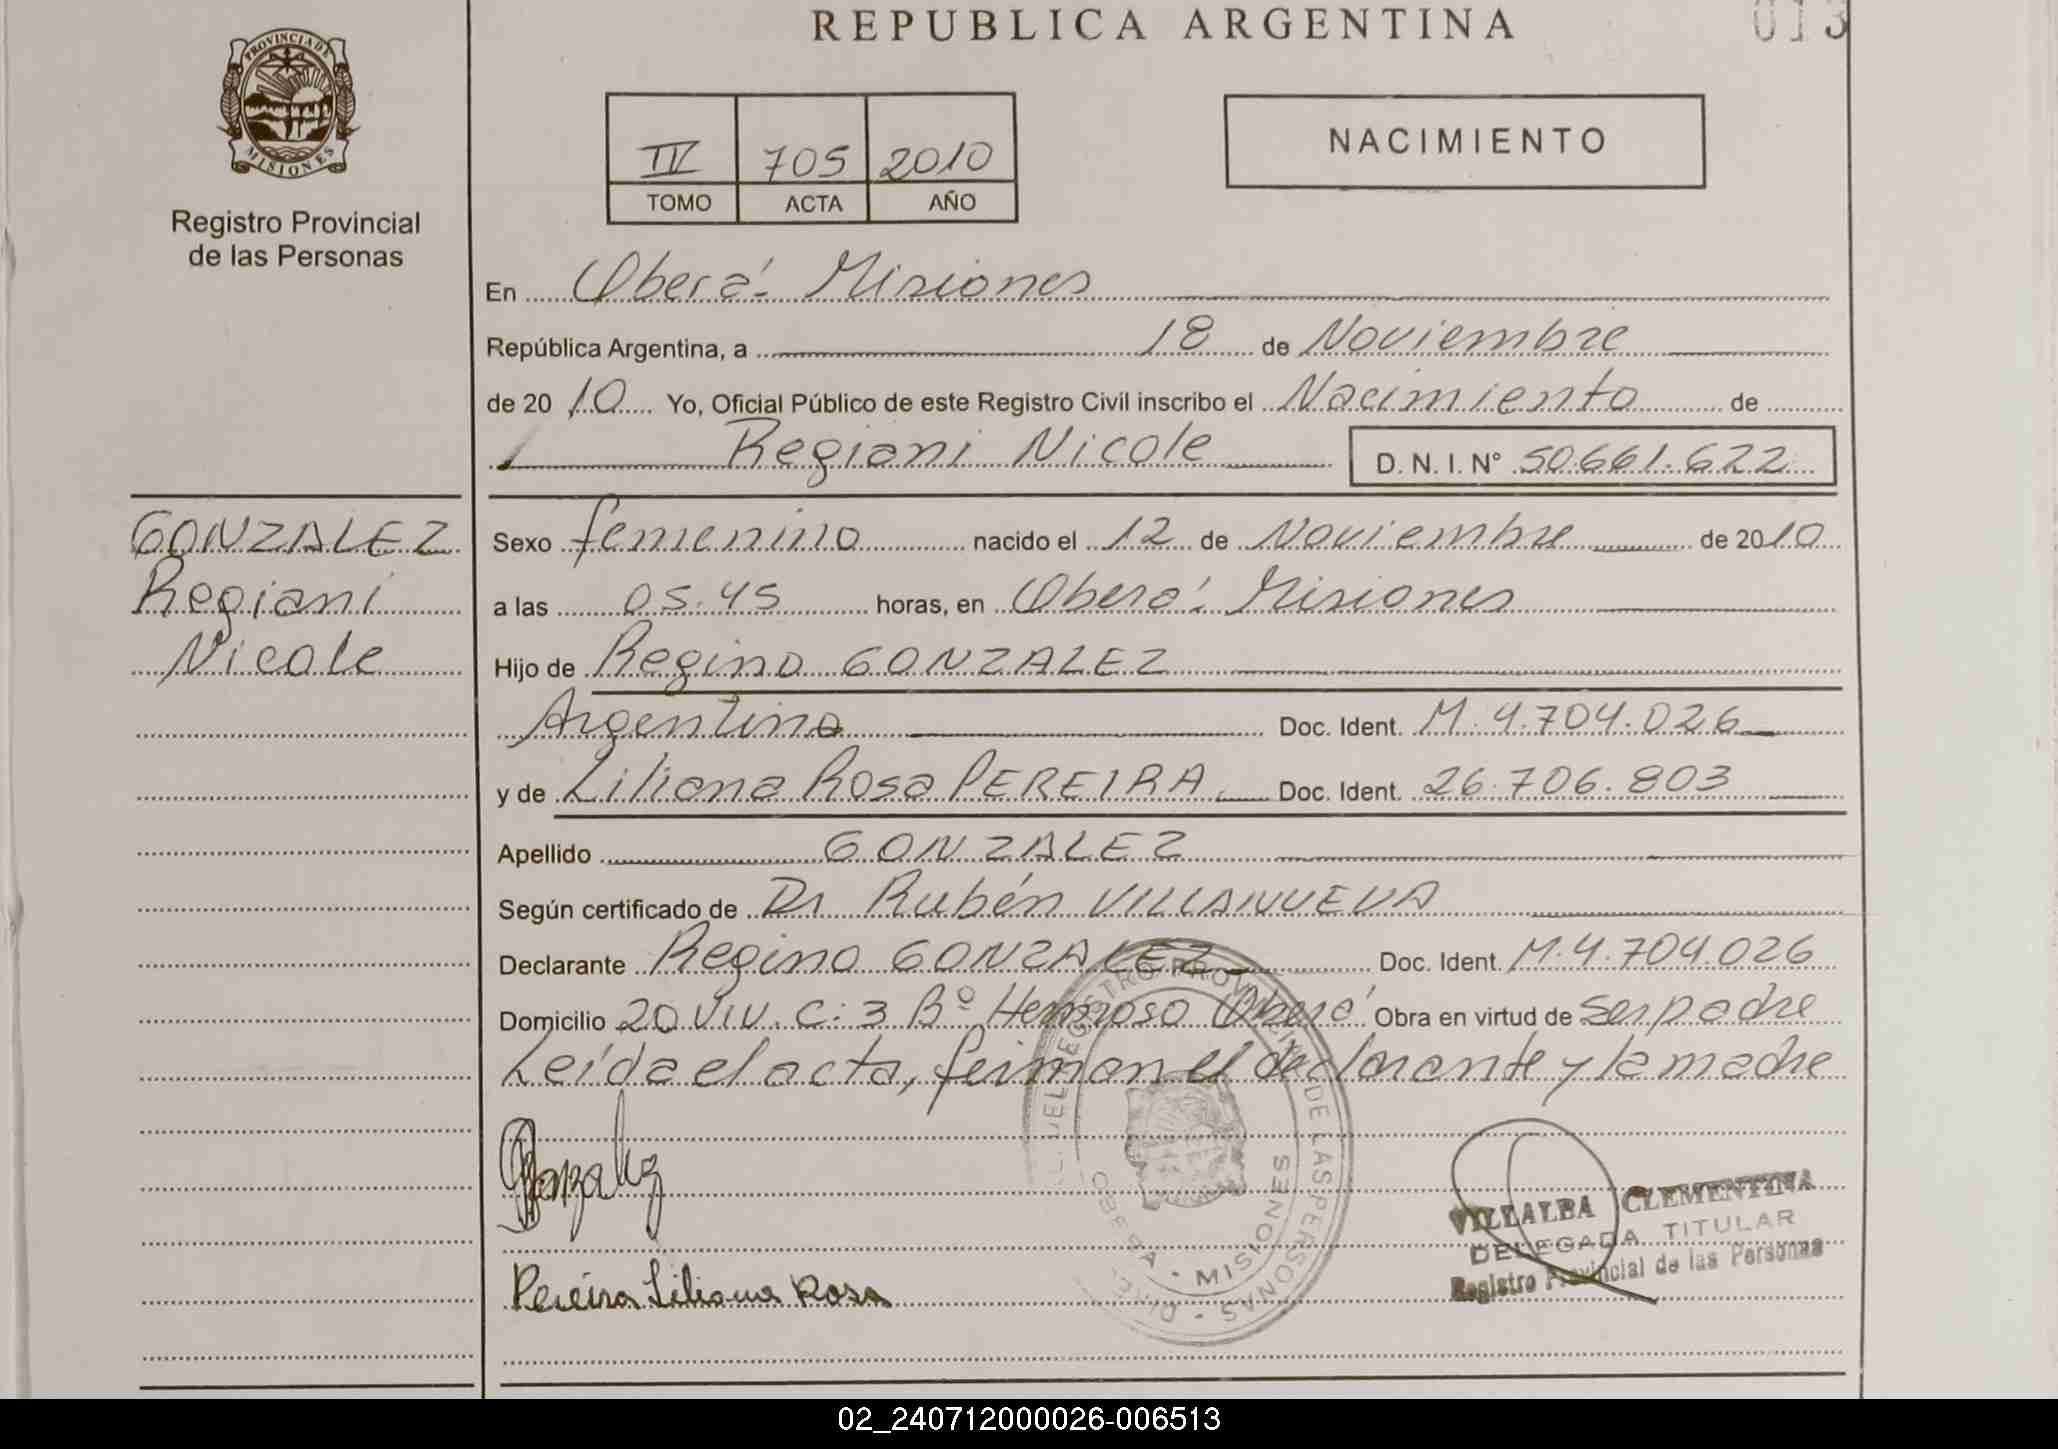 REPUBLICA ARGENTINA
013
PROVINCIA DE
MISIONES
Registro Provincial
de las Personas
NACIMIENTO
IV 705 2010
TOMO ACTA AÑO
En Oberá. Misiones
República Argentina, a 18 de Noviembre
de 20 10 Yo, Oficial Público de este Registro Civil inscribo el Nacimiento de
Regiani Nicole D.N.I. N° 50.661.622
GONZALEZ
Regiani
Nicole
Sexo femenino nacido el 12 de Noviembre de 2010
a las 05.45 horas, en Oberá. Misiones
Hijo de Regino GONZALEZ
Argentino Doc. Ident. M. 4.704.026
y de Liliana Rosa PEREIRA Doc. Ident. 26.706.803
Apellido GONZALEZ
Según certificado de Dr Rubén VILLANUEVA
Declarante Regino GONZALEZ Doc. Ident. M. 4.704.026
Domicilio 20 VIV. C: 3 B° Hermoso Oberá Obra en virtud de ser padre
Leída el acta, firman el declarante y la madre
Gonzalez
Pereira Liliana Rosa
DEL REGISTRO PROVINCIAL DE LAS PERSONAS
OBERA - MISIONES
VILLALBA CLEMENTINA
DELEGADA TITULAR
Registro Provincial de las Personas
02_240712000026-006513